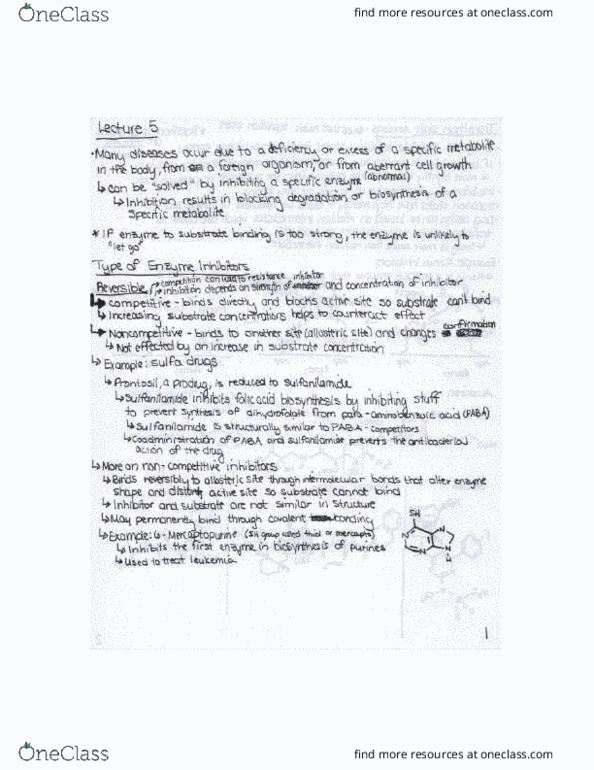 OneClass
find more resources at oneclass.com
Lecture 5
• Many diseases occur due to a deficiency or excess of a specific metabolite
in the body, from a foreign organism, or from aberrant cell growth
(abnormal)
↳ can be "solved" by inhibiting a specific enzyme
↳ Inhibition results in blocking degradation or biosynthesis of a
specific metabolite
* If enzyme to substrate binding is too strong, the enzyme is unlikely to
"let go"
Type of Enzyme Inhibitors
Reversible
competition can lead to resistance inhibitor
↳ inhibition depends on strength of and concentration of inhibitor
↳ competitive - binds directly and blocks active site so substrate can't bind
↳ Increasing substrate concentrations helps to counteract effect
↳ Noncompetitive - binds to another site (allosteric site) and changes confirmation
↳ Not effected by an increase in substrate concentration
↳ Example: sulfa drugs
↳ Prontosil, a prodrug, is reduced to sulfanilamide
↳ Sulfanilamide inhibits folic acid biosynthesis by inhibiting stuff
to prevent synthesis of dihydrofolate from para-aminobenzoic acid (PABA)
↳ Sulfanilamide is structurally similar to PABA - competitors
↳ Coadministration of PABA and sulfanilamide prevents the antibacterial
action of the drug
↳ More on non-competitive inhibitors
↳ Binds reversibly to allosteric site through intermolecular bonds that alter enzyme
shape and distort active site so substrate cannot bind
↳ Inhibitor and substrate are not similar in structure
↳ May permanently bind through covalent bonding
↳ Example: 6-Mercaptopurine (SH group called thiol or mercapto)
↳ Inhibits the first enzyme in biosynthesis of purines
↳ Used to treat leukemia
SH
N
N
N
N
H
1
OneClass
find more resources at oneclass.com